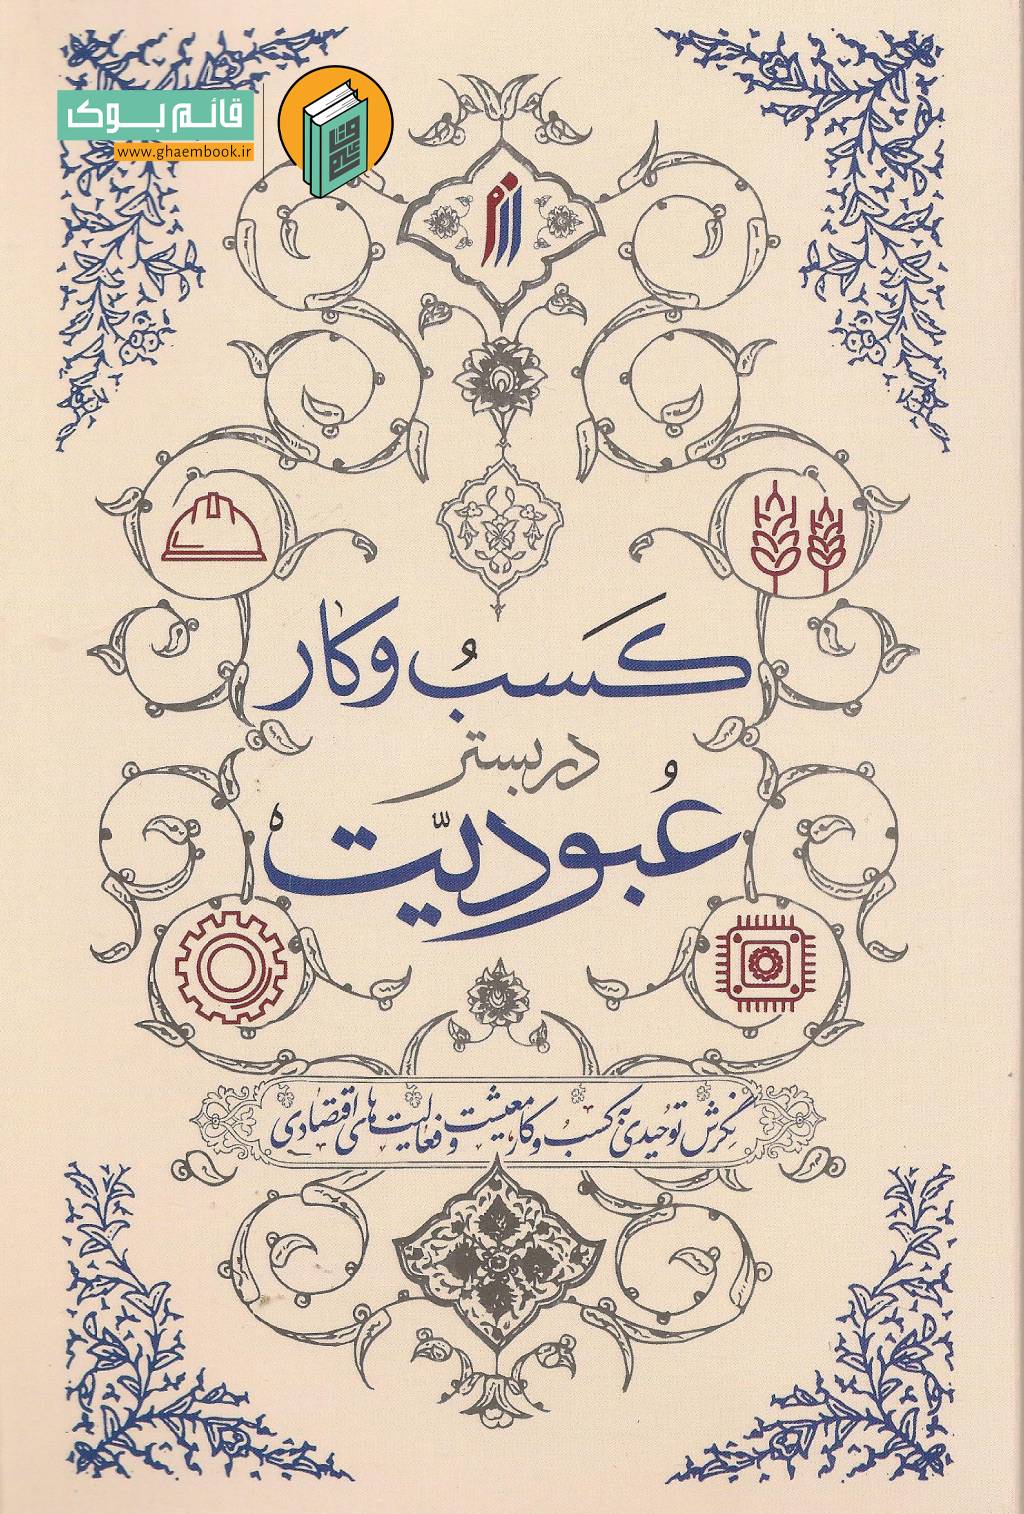 قائم بوک
www.ghaembook.ir
کَسبُ وکار
در بستر
عُبودیّت
نگِرش توحیدی به کسبُ و کار، معیشت و فعالیت‌های اقتصادی